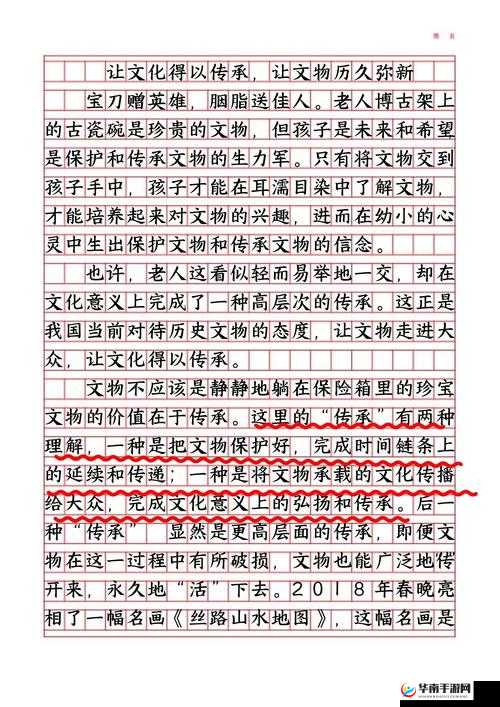 姓名
让文化得以传承，让文物历久弥新
宝刀赠英雄，胭脂送佳人。老人博古架上
的古瓷碗是珍贵的文物，但孩子是未来和希望
是保护和传承文物的生力军。只有将文物交到
孩子手中，孩子才能在耳濡目染中了解文物，
才能培养起来对文物的兴趣，进而在幼小的心
灵中生出保护文物和传承文物的信念。
也许，老人这看似轻而易举地一交，却在
文化意义上完成了一种高层次的传承。这正是
我国当前对待历史文物的态度，让文物走进大
众，让文化得以传承。
文物不应该是静静地躺在保险箱里的珍宝
文物的价值在于传承。这里的“传承”有两种
理解，一种是把文物保护好，完成时间链条上
的延续和传递；一种是将文物承载的文化传播
给大众，完成文化意义上的弘扬和传承。后一
种“传承” 显然是更高层面的传承，即便文
物在这一过程中有所破损，文物也能广泛地传
开来，永久地“活”下去。2018年春晚亮
相了一幅名画《丝路山水地图》，这幅名画是
华南手游网